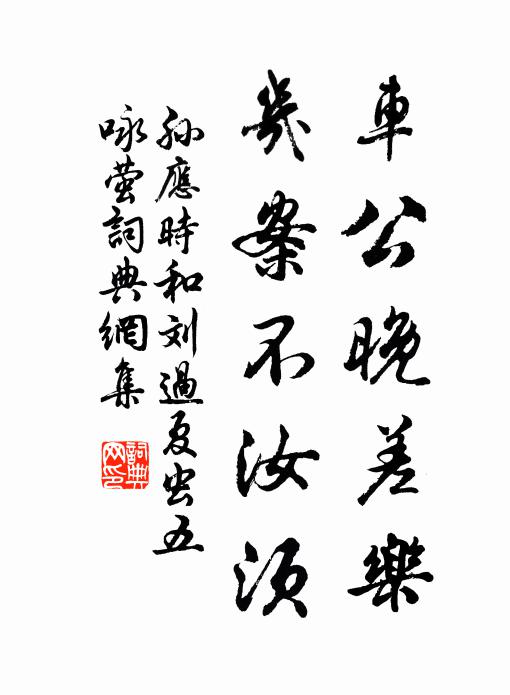 車公晚差樂
幾案不汝須
孫應時和刘過夏虫五
咏萤詞典網集
詞典网印